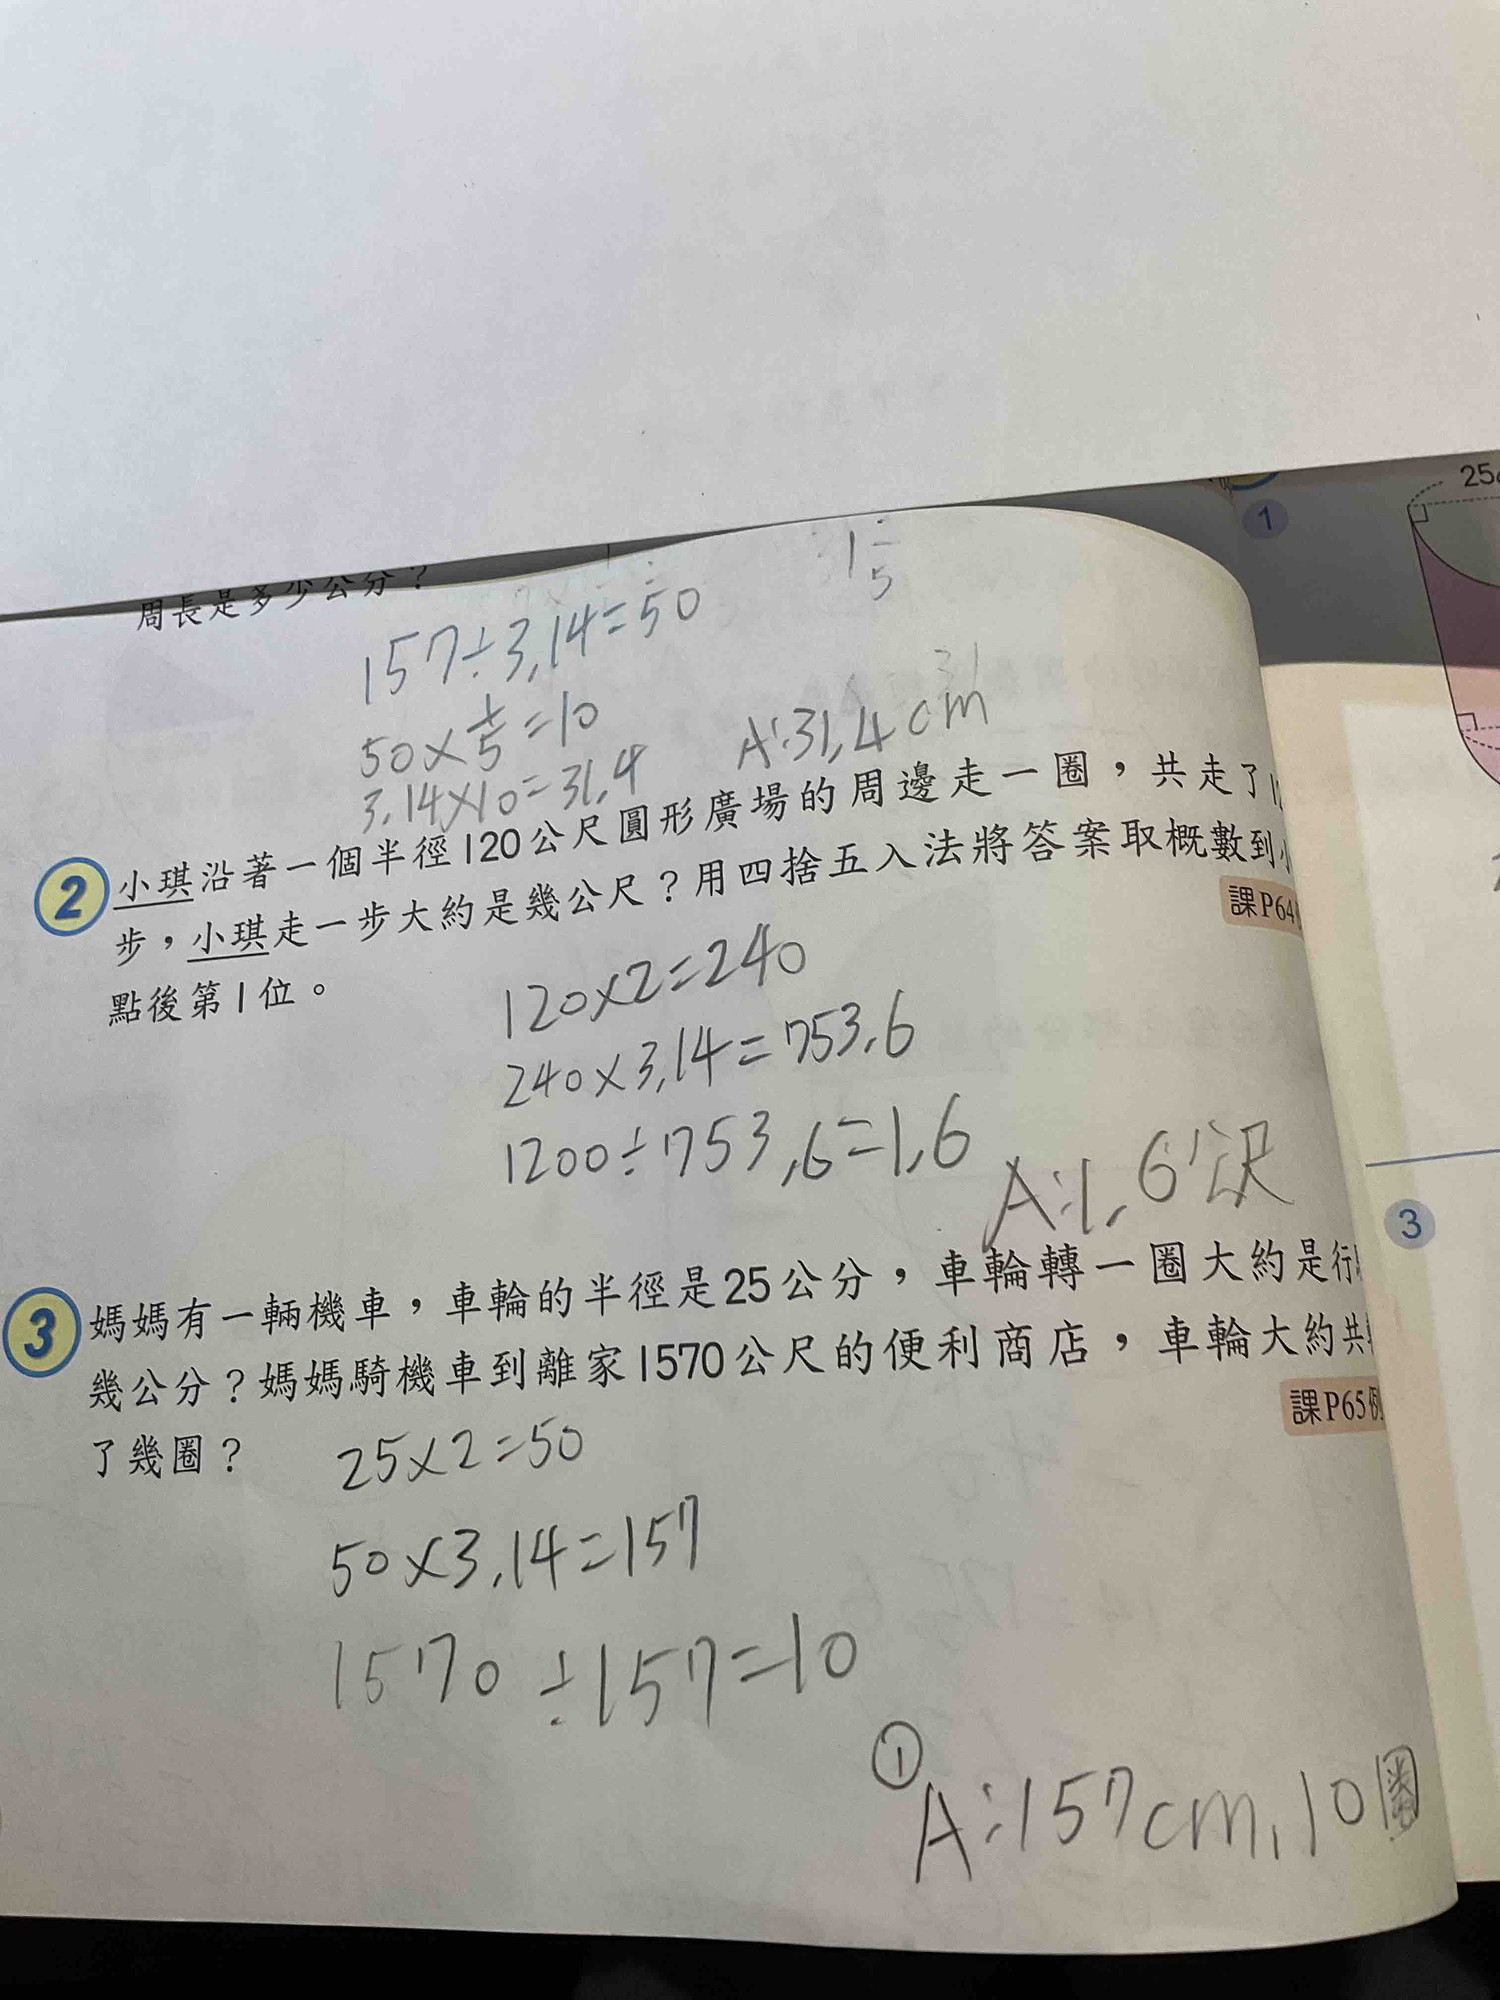 25
1
1/5
周長是多少公分？
157÷3.14=50
50×1/5=10
3.14×10=31.4
31
A:31.4cm
2 小琪沿著一個半徑120公尺圓形廣場的周邊走一圈，共走了
步，小琪走一步大約是幾公尺？用四捨五入法將答案取概數到
點後第1位。
課P64
120×2=240
240×3.14=753.6
1200÷753.6=1.6
A:1.6公尺
3
3 媽媽有一輛機車，車輪的半徑是25公分，車輪轉一圈大約是行
幾公分？媽媽騎機車到離家1570公尺的便利商店，車輪大約共
了幾圈？
課P65例
25×2=50
50×3.14=157
1570÷157=10
①
A:157cm,10圈